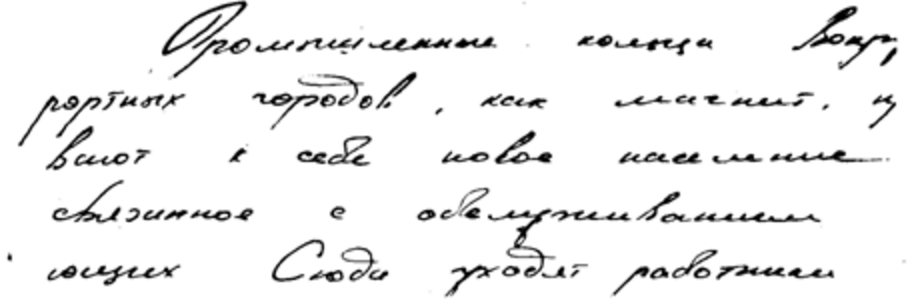 Промышленные кольца вокру
рортных городов, как магнит, п
вают к себе новое население
связанное с обслуживанием
ющих Сюда уходят работники